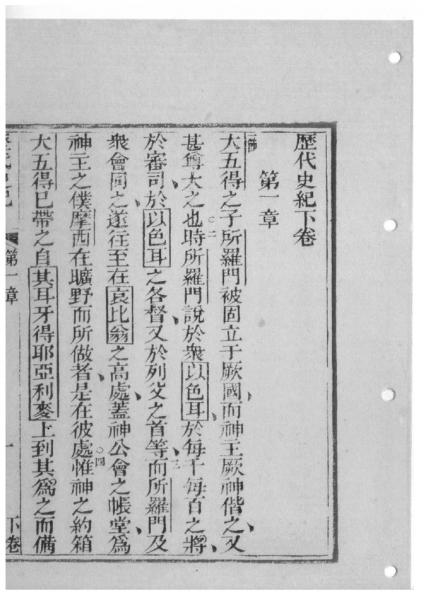 歷代史紀下卷
第一章
一節
大五得之子所羅門被固立于厥國而神主厥神偕之又
甚尊大之也二時所羅門說於衆以色耳於每千每百之將
於審司於以色耳之各督又於列父之首等三而所羅門及
衆會同之遂往至在哀比翁之高處蓋神公會之帳堂爲
神主之僕摩西在曠野而所做者是在彼處四惟神之約箱
大五得已帶之自其耳牙得耶亞利麥上到其爲之而備
第一章 一 下卷